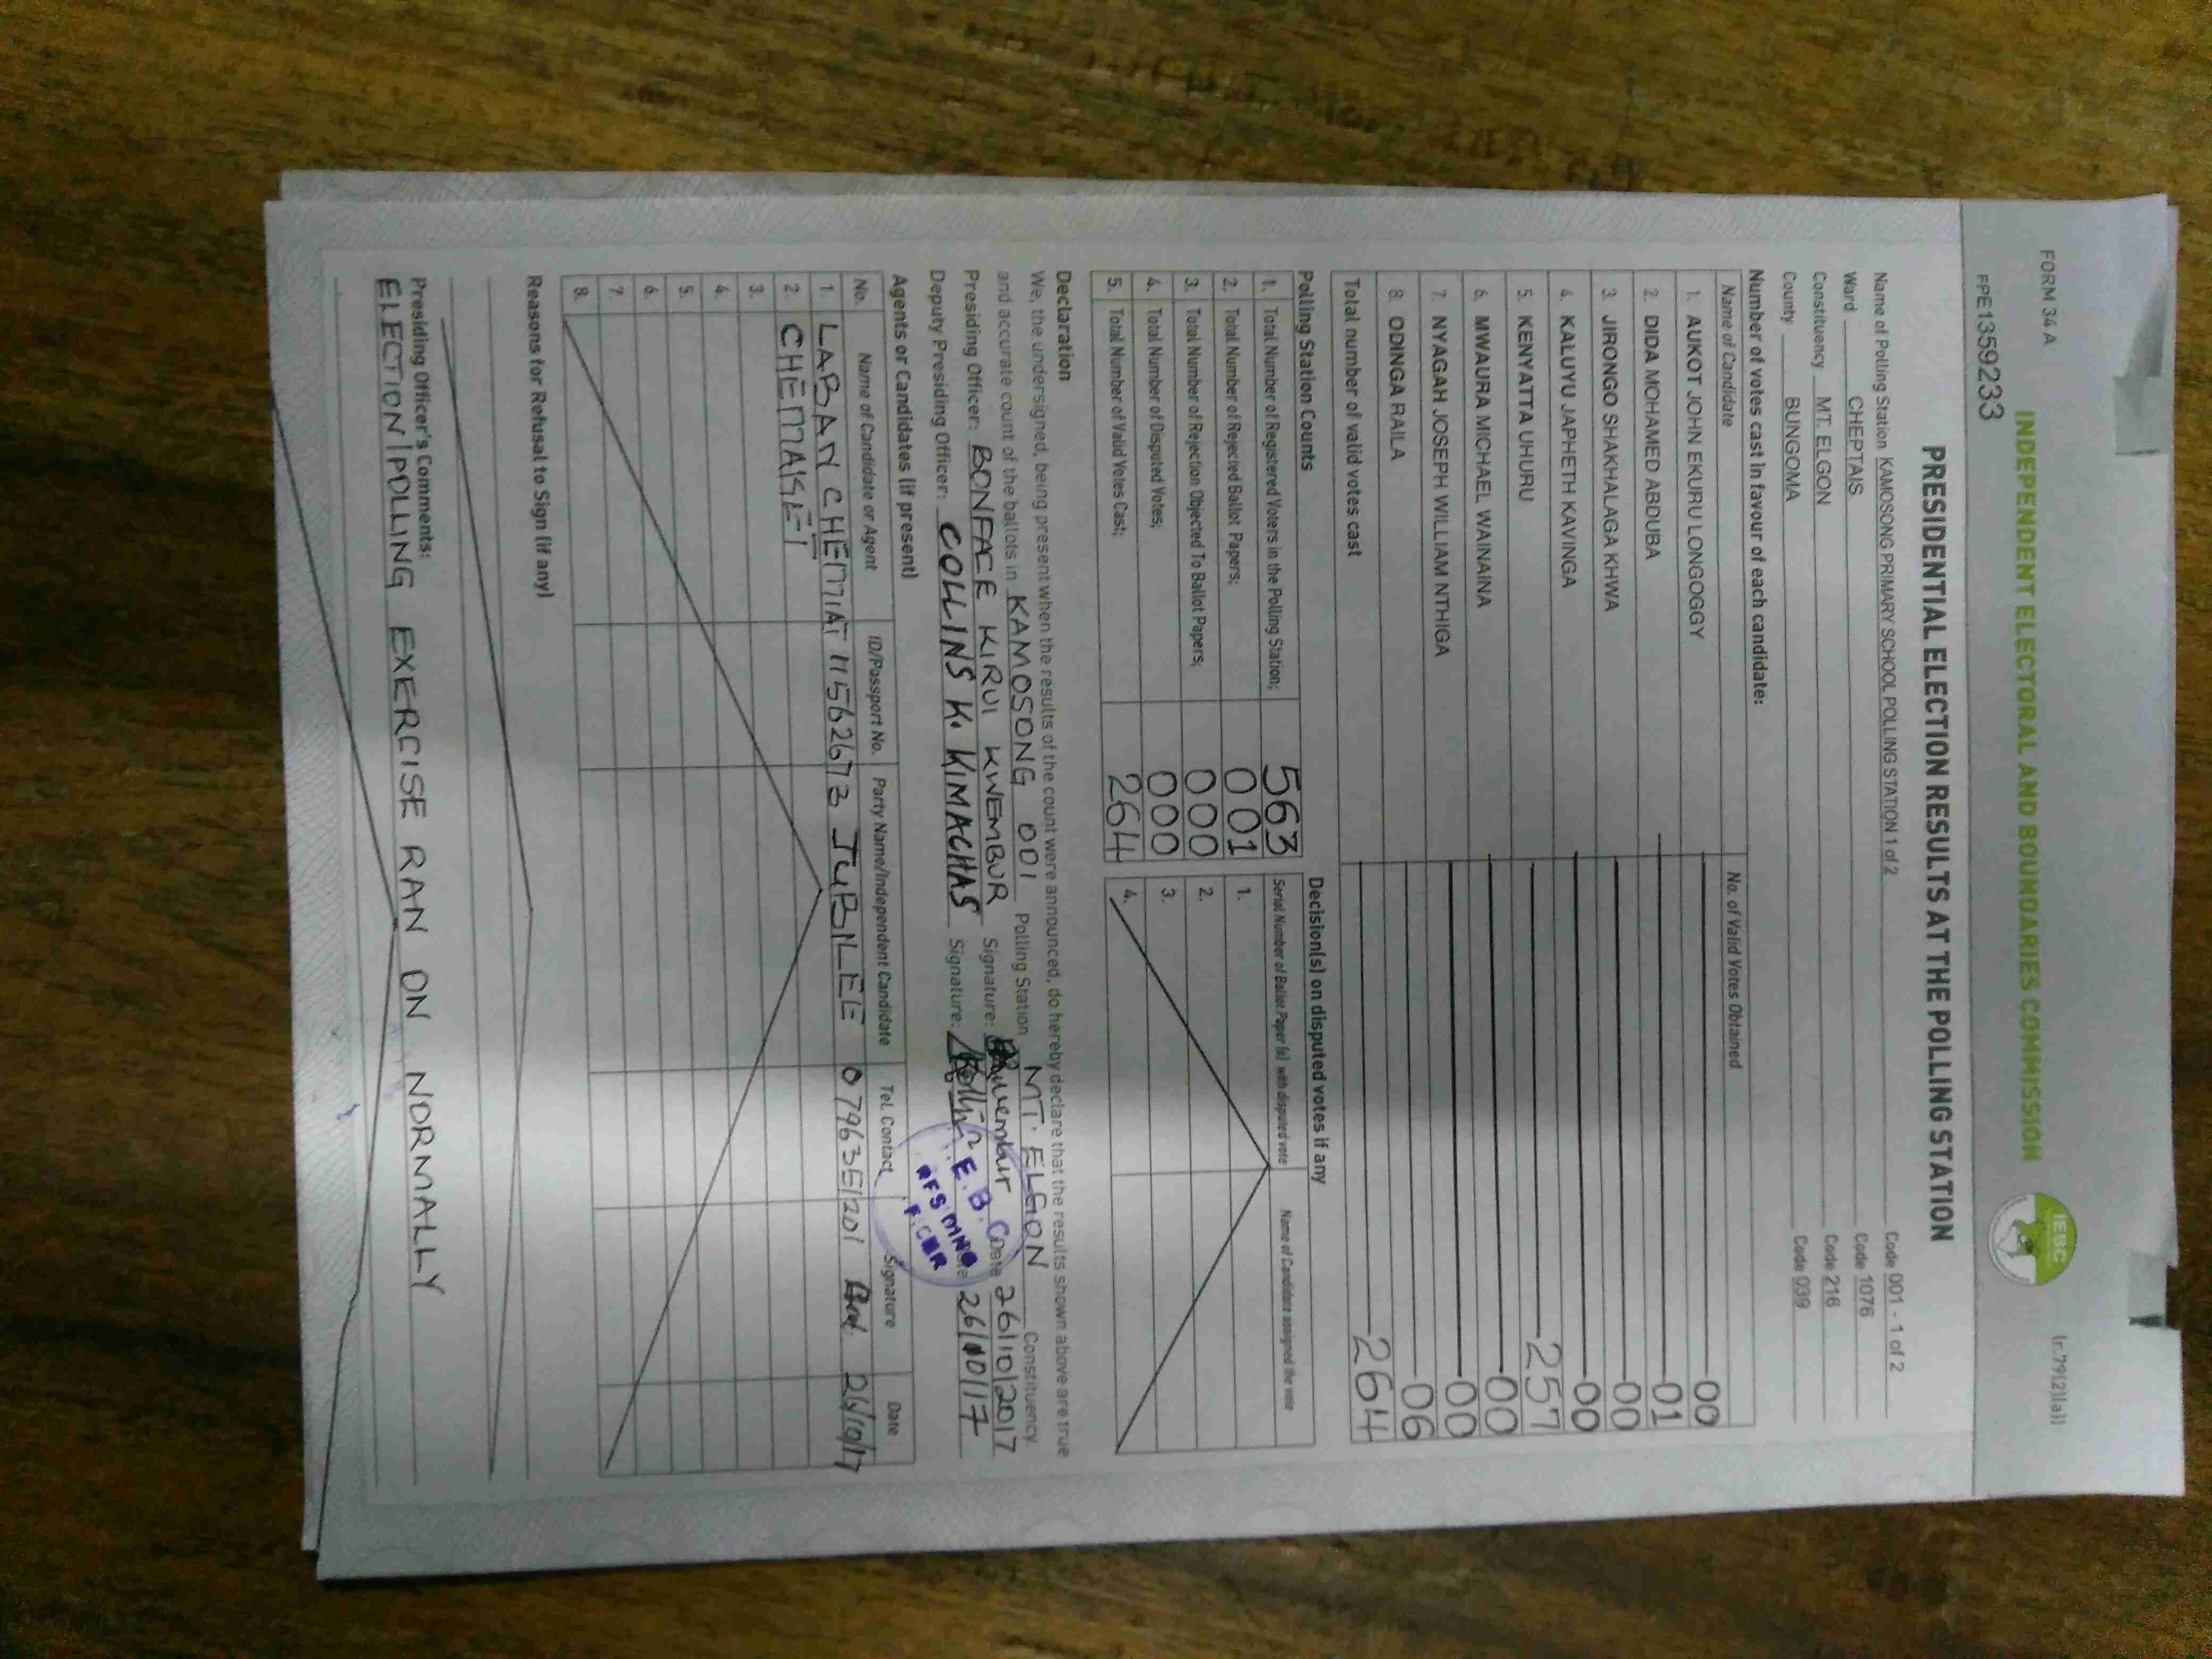 FORM 34 A
(r.79(2)(a))
INDEPENDENT ELECTORAL AND BOUNDARIES COMMISSION
IEBC
FPE1359233
PRESIDENTIAL ELECTION RESULTS AT THE POLLING STATION
Name of Polling Station KAMOSONG PRIMARY SCHOOL POLLING STATION 1 of 2 Code 001 - 1 of 2
Ward CHEPTAIS Code 1076
Constituency MT. ELGON Code 216
County BUNGOMA Code 039
Number of votes cast in favour of each candidate:
Name of Candidate No. of Valid Votes Obtained
1. AUKOT JOHN EKURU LONGOGGY 00
2. DIDA MOHAMED ABDUBA 01
3. JIRONGO SHAKHALAGA KHWA 00
4. KALUYU JAPHETH KAVINGA 00
5. KENYATTA UHURU 257
6. MWAURA MICHAEL WAINAINA 00
7. NYAGAH JOSEPH WILLIAM NTHIGA 00
8. ODINGA RAILA 06
Total number of valid votes cast 264
Polling Station Counts
1. Total Number of Registered Voters in the Polling Station; 563
2. Total Number of Rejected Ballot Papers; 001
3. Total Number of Rejection Objected To Ballot Papers; 000
4. Total Number of Disputed Votes; 000
5. Total Number of Valid Votes Cast; 264
Decision(s) on disputed votes if any
Serial Number of Ballot Paper (s) with disputed vote Name of Candidate assigned the vote
1.
2.
3.
4.
Declaration
We, the undersigned, being present when the results of the count were announced, do hereby declare that the results shown above are true
and accurate count of the ballots in KAMOSONG 001 Polling Station MT. ELGON Constituency
Presiding Officer: BONFACE KIRUI KWEMBUR Signature: Kwembur Date 26/10/2017
Deputy Presiding Officer: COLLINS K. KIMACHAS Signature: 26/10/17
Agents or Candidates (if present)
No. Name of Candidate or Agent ID/Passport No. Party Name/Independent Candidate Tel. Contact Signature Date
1. LABAN CHEMIAT 11562673 JUBILEE 0796351201 26/10/17
2. CHEMASET
3.
4.
5.
6.
7.
8.
Reasons for Refusal to Sign (if any)
Presiding Officer's Comments:
ELECTION/POLLING EXERCISE RAN ON NORMALLY